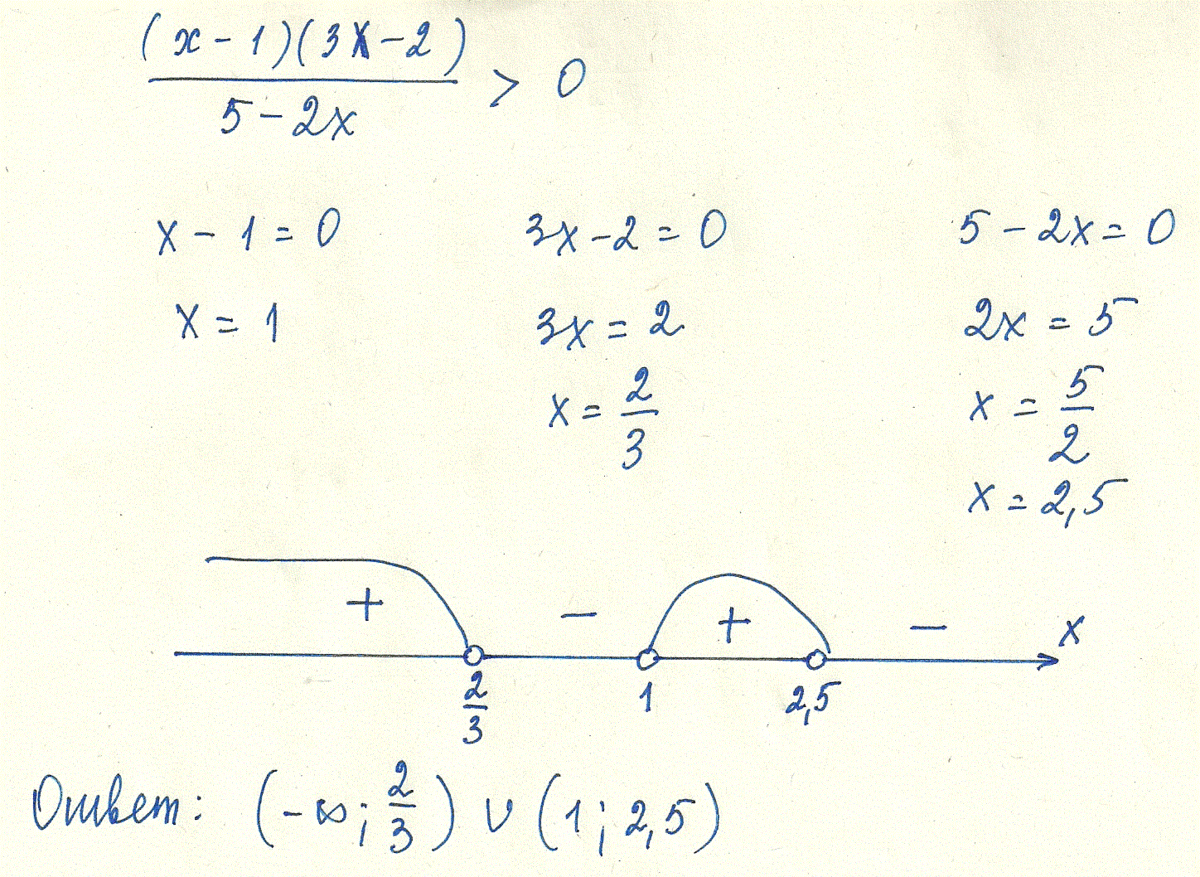 (x-1)(3x-2)
5-2x
> 0
x-1=0 3x-2=0 5-2x=0
x=1 3x=2 2x=5
x=2/3 x=5/2
x=2,5
+ - + - x
2/3 1 2,5
Ответ: (-∞; 2/3) ∪ (1; 2,5)